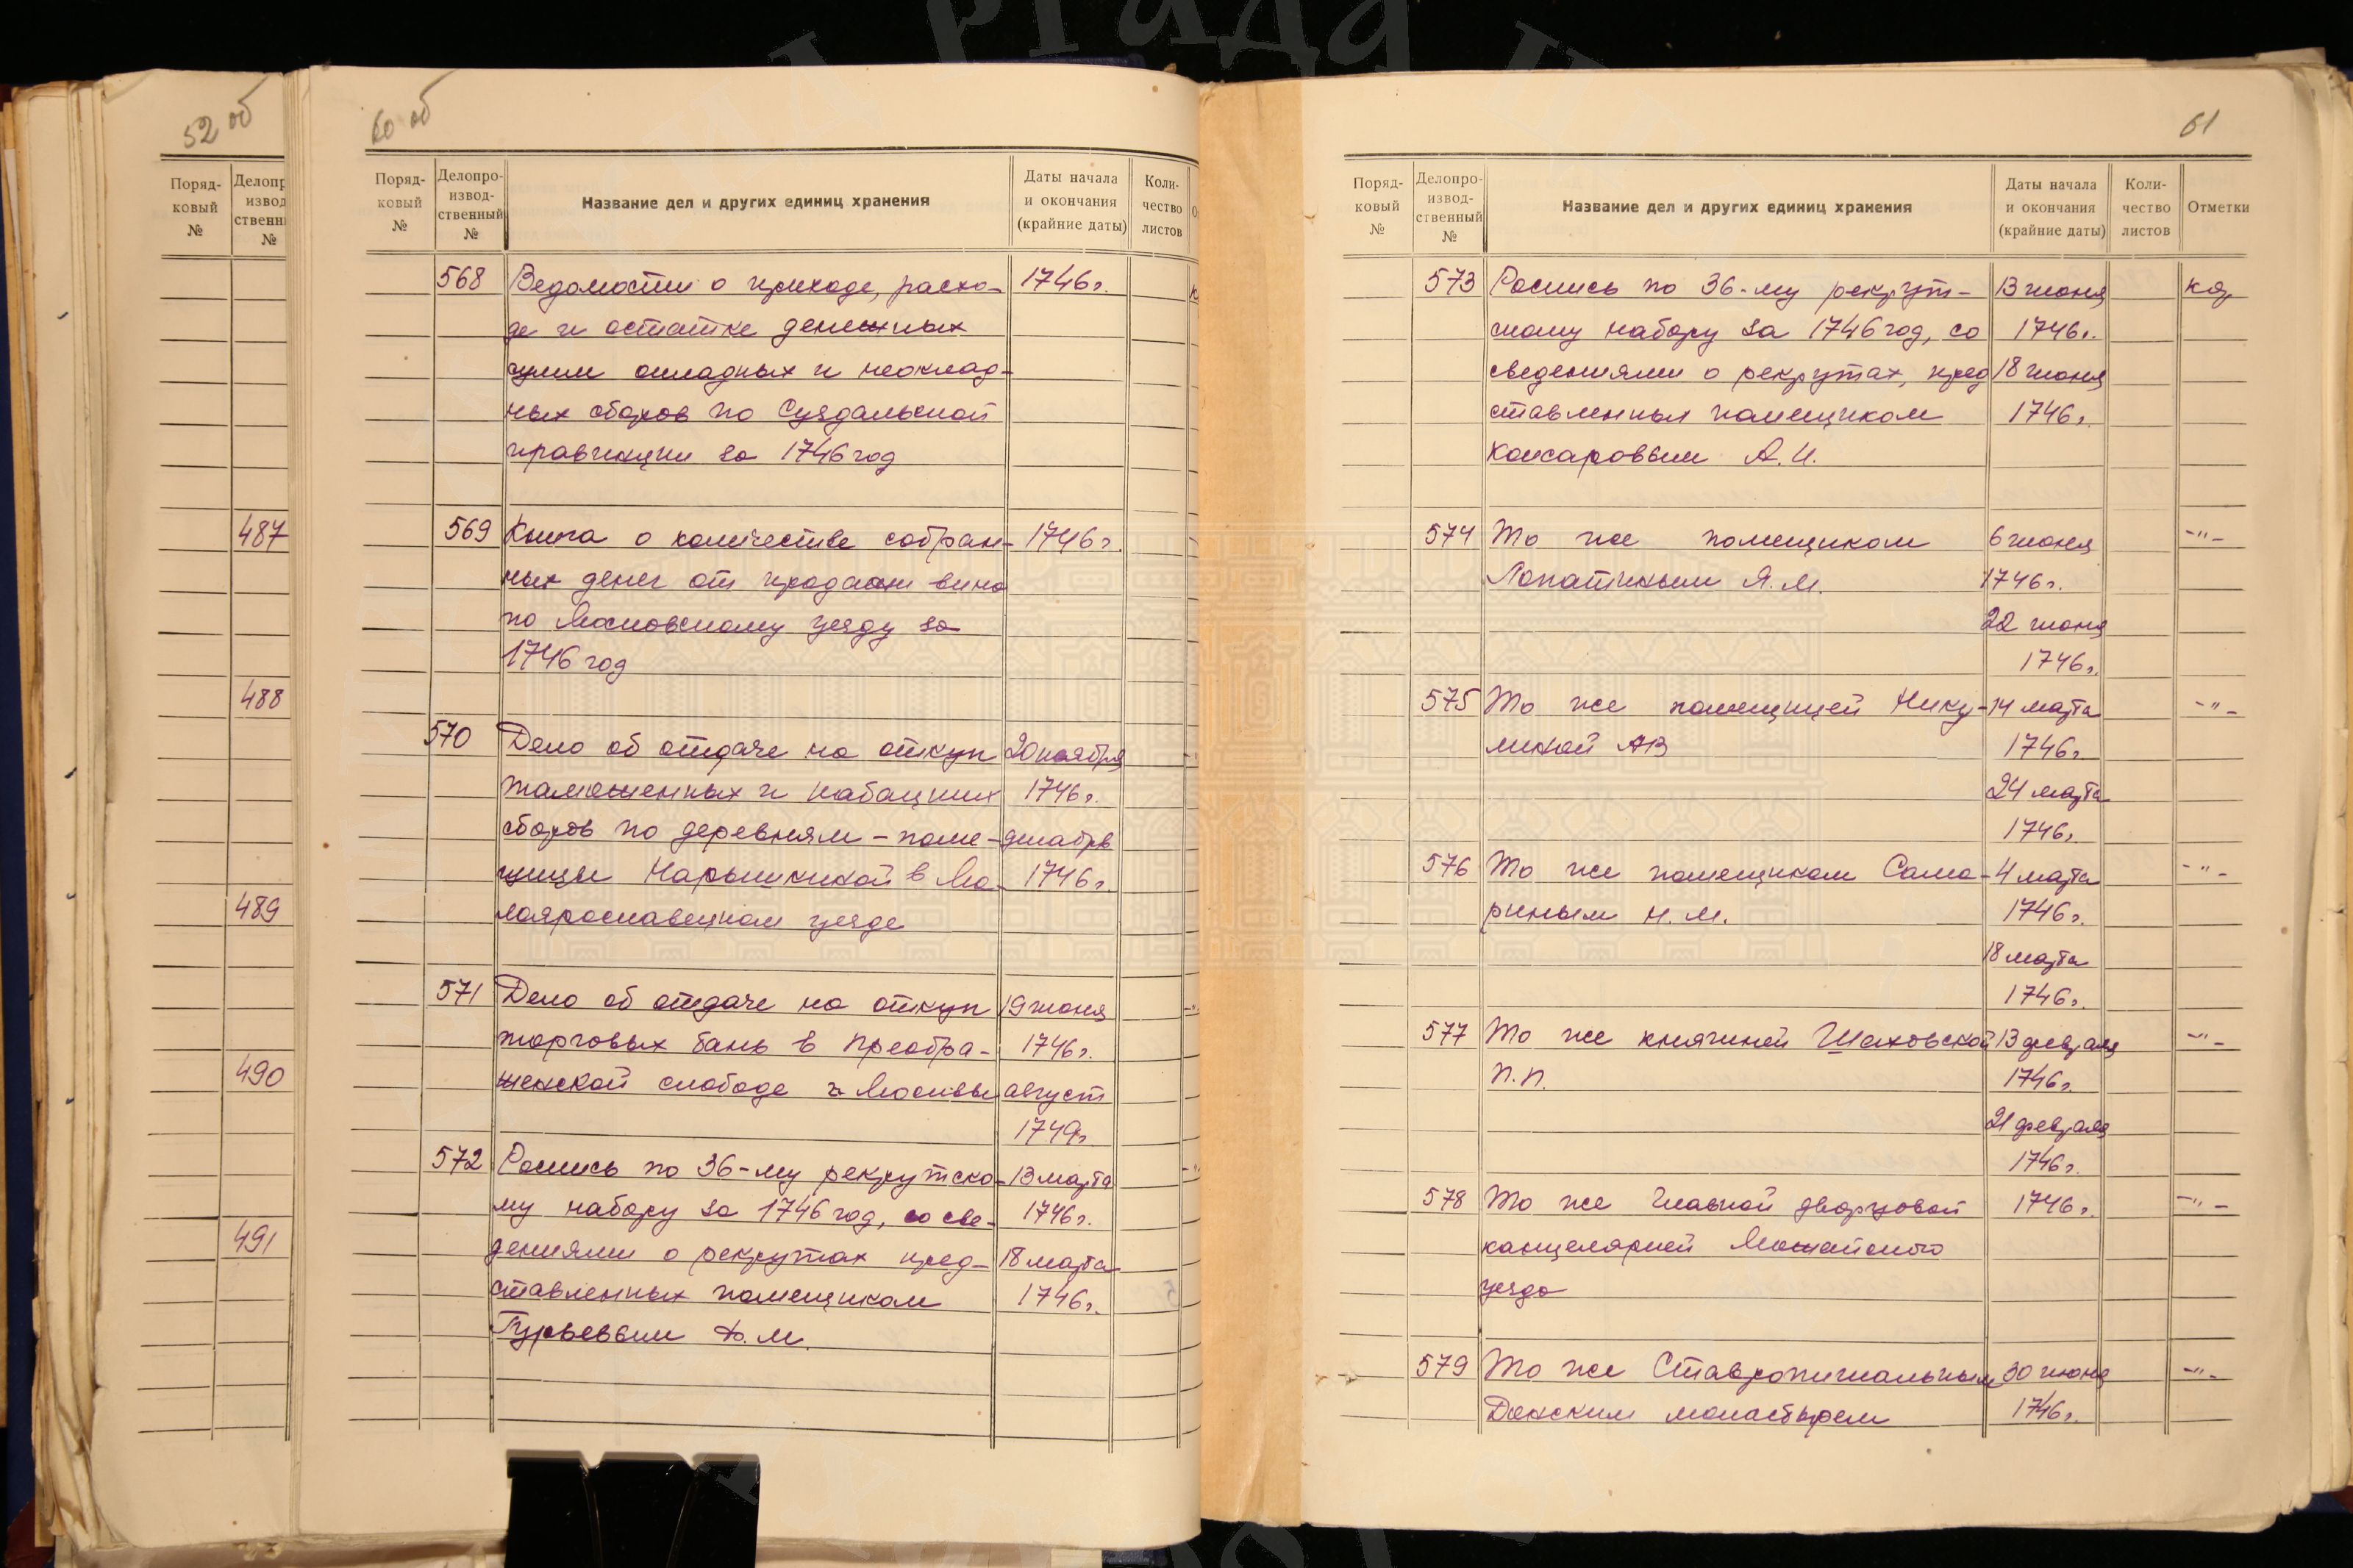 52 об
Поряд-
ковый
№
487
488
489
490
491
60 об
Поряд-
ковый
№
Делопро-
извод-
ственный
№
Название дел и других единиц хранения
Даты начала
и окончания
(крайние даты)
Коли-
чество
листов
568 Ведомости о приходе, расхо- 1746 г.
де и остатке денежных
сумм окладных и неоклад-
ных сборов по Суздальской
провинции за 1746 год
569 Книга о количестве собран- 1746 г.
ных денег от продажи вина
по Московскому уезду за
1746 год
570 Дело об отдаче на откуп 20 ноября
таможенных и кабацких 1746 г.
сборов по деревням – поме- декабрь
щицы Нарышкиной в Ма- 1746 г.
лоярославецком уезде
571 Дело об отдаче на откуп 19 июня
торговых бань в Преобра- 1746 г.
женской слободе г. Москвы август
1749 г.
572 Роспись по 36-му рекрутско- 13 марта
му набору за 1746 год, со све- 1746 г.
дениями о рекрутах пред- 18 марта
ставленных помещиком 1746 г.
Гурьевым Ф.М.
61
Поряд-
ковый
№
Делопро-
извод-
ственный
№
Название дел и других единиц хранения
Даты начала
и окончания
(крайние даты)
Коли-
чество
листов
Отметки
573 Роспись по 36-му рекрут- 13 июня
скому набору за 1746 год, со 1746 г.
сведениями о рекрутах, пред 18 июня
ставленных помещиком 1746 г.
Кансаровым А.И.
574 То же помещиком 6 июня -"-
Лопатиным Я.М. 1746 г.
22 июня
1746 г.
575 То же помещицей Нику- 14 марта -"-
линой АВ 1746 г.
24 марта
1746 г.
576 То же помещиком Сама- 4 марта -"-
риным Н.М. 1746 г.
18 марта
1746 г.
577 То же княгиней Шаховской 13 февраля -"-
П.П. 1746 г.
21 февраля
1746 г.
578 То же Главной дворцовой 1746 г. -"-
канцелярией Можайского
уезда
579 То же Ставропигиальным 30 июня -"-
Донским монастырем 1746 г.